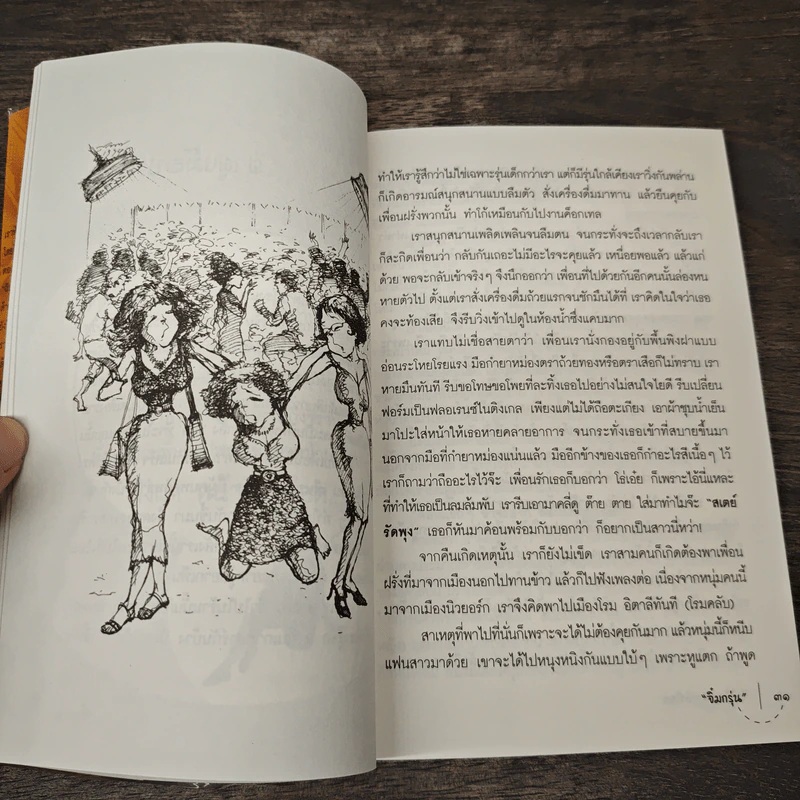 ทำให้เรารู้สึกว่าไม่ใช่เฉพาะรุ่นเด็กกว่าเรา แต่ก็มีรุ่นใกล้เคียงเราวิ่งกันพล่าน
ก็เกิดอารมณ์สนุกสนานแบบลืมตัว สั่งเครื่องดื่มมาทาน แล้วยืนคุยกับ
เพื่อนฝรั่งพวกนั้น ทำโก้เหมือนกับไปงานค็อกเทล
เราสนุกสนานเพลิดเพลินจนลืมตน จนกระทั่งจะถึงเวลากลับเรา
ก็สะกิดเพื่อนว่า กลับกันเถอะไม่มีอะไรจะคุยแล้ว เหนื่อยพอแล้ว แล้วแก่
ด้วย พอจะกลับเข้าจริงๆ จึงนึกออกว่า เพื่อนที่ไปด้วยกันอีกคนนั้นล่องหน
หายตัวไป ตั้งแต่เราสั่งเครื่องดื่มถ้วยแรกจนชักมึนได้ที่ เราคิดในใจว่าเธอ
คงจะท้องเสีย จึงรีบวิ่งเข้าไปดูในห้องน้ำซึ่งแคบมาก
เราแทบไม่เชื่อสายตาว่า เพื่อนเรานั่งกองอยู่กับพื้นพิงฝาแบบ
อ่อนระโหยโรยแรง มือกำยาหม่องตราถ้วยทองหรือตราเสือก็ไม่ทราบ เรา
หายมึนทันที รีบขอโทษขอโพยที่ละทิ้งเธอไปอย่างไม่สนใจไยดี รีบเปลี่ยน
ฟอร์มเป็นฟลอเรนซ์ไนติงเกล เพียงแต่ไม่ได้ถือตะเกียง เอาผ้าชุบน้ำเย็น
มาโปะใส่หน้าให้เธอหายคลายอาการ จนกระทั่งเธอเข้าที่สบายขึ้นมา
นอกจากมือที่กำยาหม่องแน่นแล้ว มืออีกข้างของเธอก็กำอะไรสีเนื้อๆ ไว้
เราก็ถามว่าถืออะไรไว้จ๊ะ เพื่อนรักเธอก็บอกว่า โธ่เอ๋ย ก็เพราะไอ้นี่แหละ
ที่ทำให้เธอเป็นลมล้มพับ เรารีบเอามาคลี่ดู ต๊าย ตาย ใส่มาทำไมจ๊ะ “สเตย์
รัดพุง” เธอก็หันมาค้อนพร้อมกับบอกว่า ก็อยากเป็นสาวนี่หว่า!
จากคืนเกิดเหตุนั้น เราก็ยังไม่เข็ด เราสามคนก็เกิดต้องพาเพื่อน
ฝรั่งที่มาจากเมืองนอกไปทานข้าว แล้วก็ไปฟังเพลงต่อ เนื่องจากหนุ่มคนนี้
มาจากเมืองนิวยอร์ก เราจึงคิดพาไปเมืองโรม อิตาลีทันที (โรมคลับ)
สาเหตุที่พาไปที่นั่นก็เพราะจะได้ไม่ต้องคุยกันมาก แล้วหนุ่มนี้ก็หนีบ
แฟนสาวมาด้วย เขาจะได้ไปหนุงหนิงกันแบบใบ้ๆ เพราะหูแตก ถ้าพูด
“จิ๋มกรุ่น” ๓๑